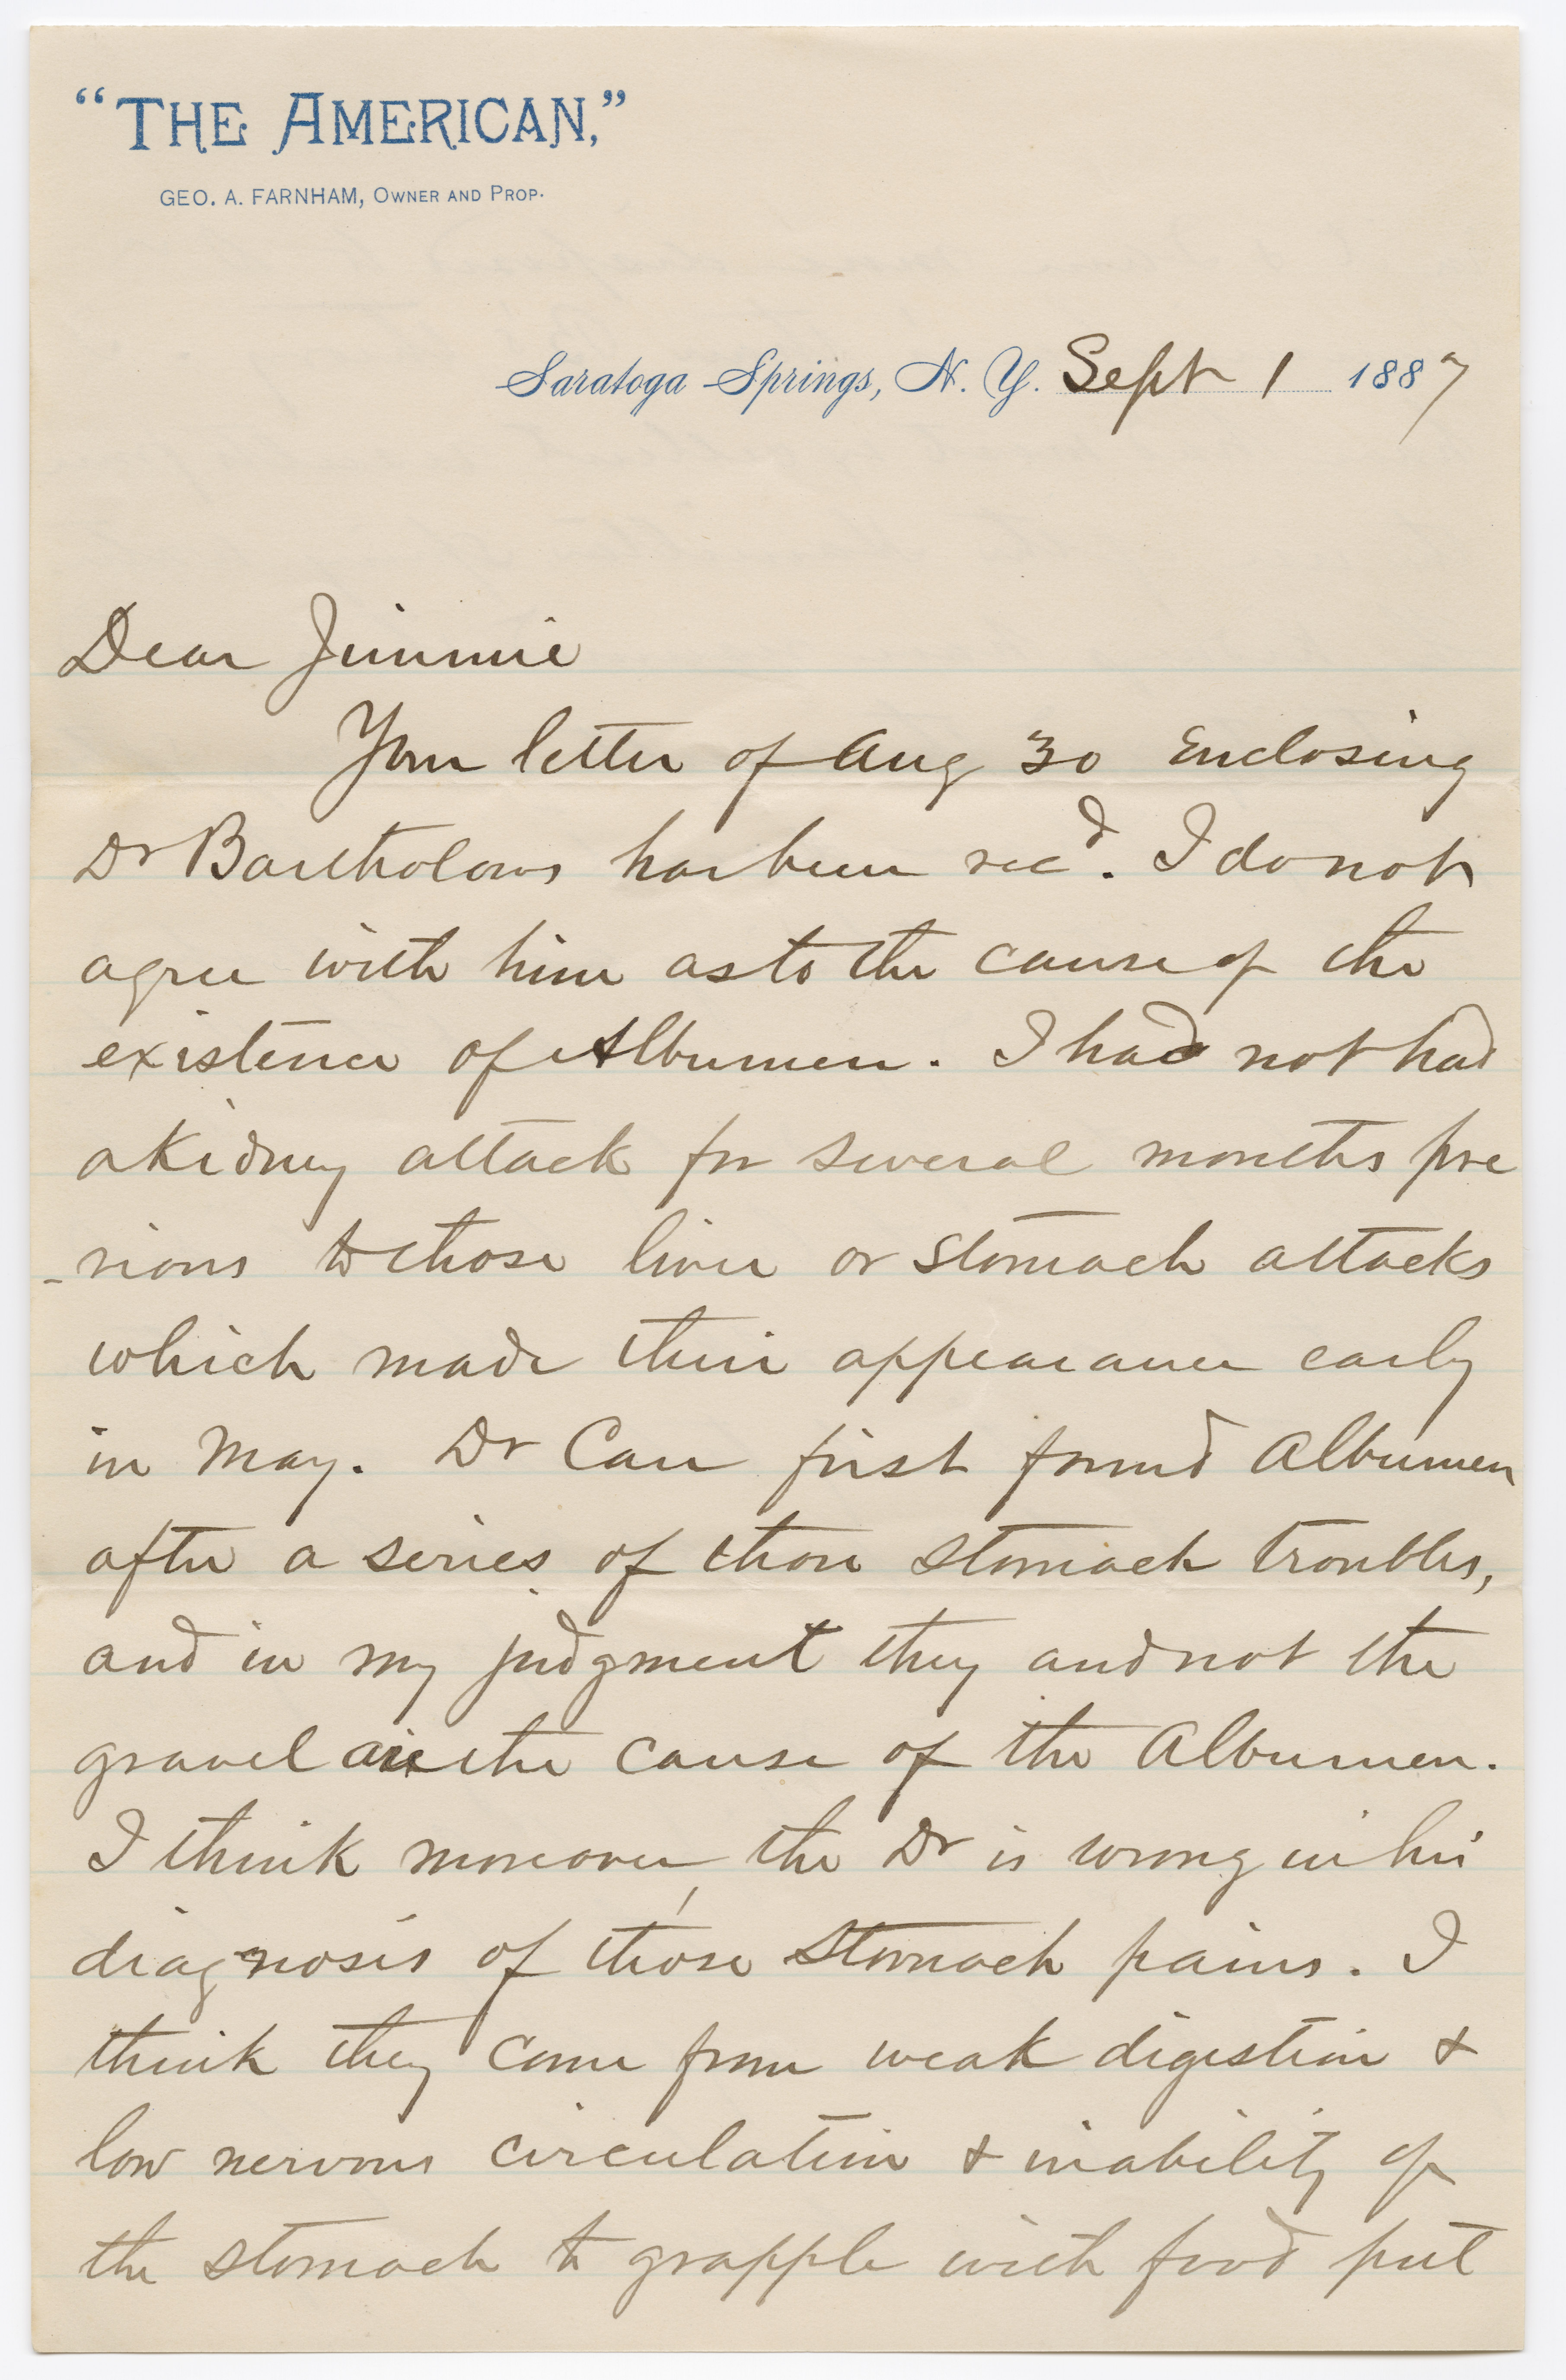 “THE AMERICAN,”
GEO. A. FARNHAM, OWNER AND PROP.
Saratoga Springs, N. Y. Sept 1 1887
Dear Jimmie
Your letter of Aug 30 Enclosing
Dr Bartholows has been recd. I do not
agree with him as to the cause of the
existence of Albumen. I had not had
a Kidney attack for several months pre
-vious to those liver or stomach attacks
which made their appearance early
in May. Dr Carr first found Albumen
after a series of those stomach troubles,
and in my judgment they and not the
gravel are the cause of the Albumen.
I think moreover, the Dr is wrong in his
diagnosis of those stomach pains. I
think they come from weak digestion &
low nervous circulation & inability of
the stomach to grapple with food put